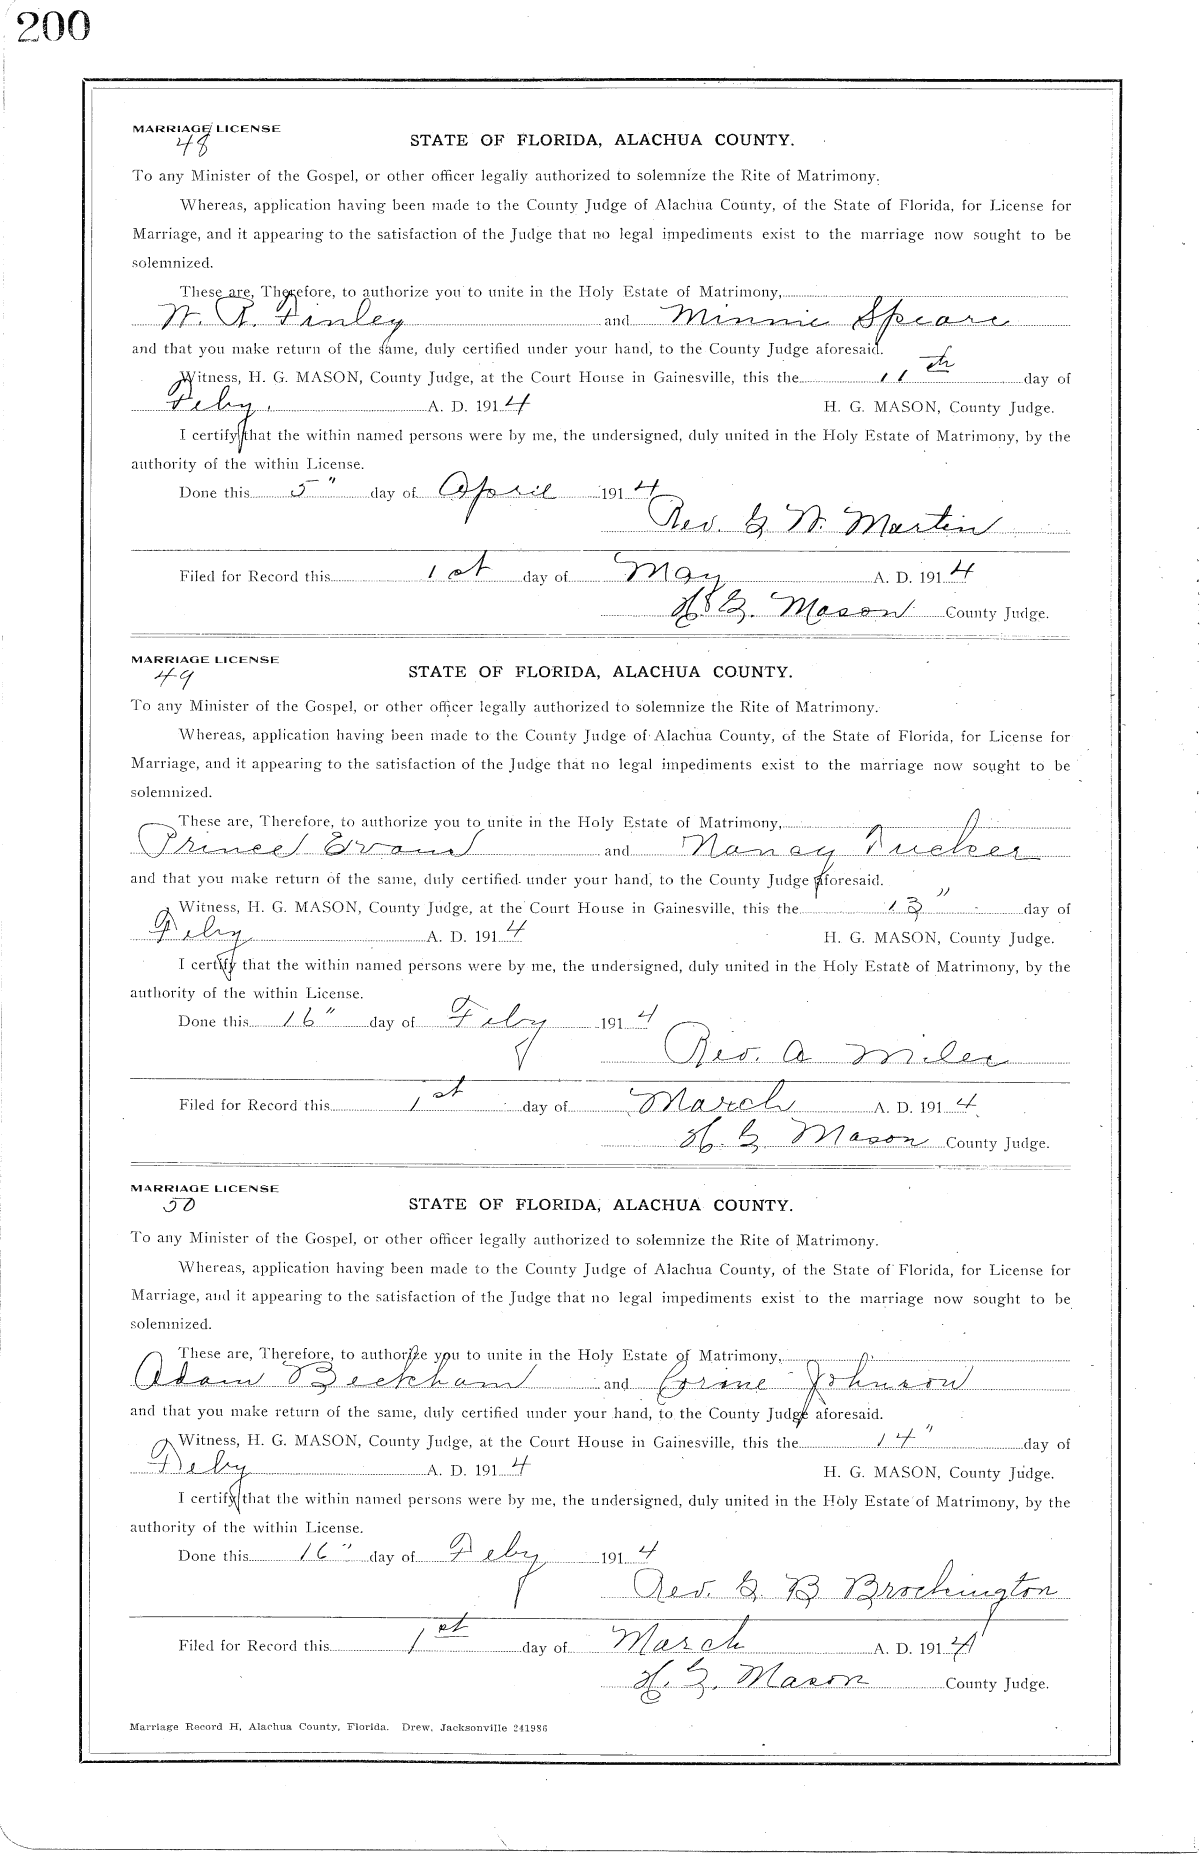 200
MARRIAGE LICENSE
48
STATE OF FLORIDA, ALACHUA COUNTY.
To any Minister of the Gospel, or other officer legally authorized to solemnize the Rite of Matrimony.
Whereas, application having been made to the County Judge of Alachua County, of the State of Florida, for License for
Marriage, and it appearing to the satisfaction of the Judge that no legal impediments exist to the marriage now sought to be
solemnized.
These are, Therefore, to authorize you to unite in the Holy Estate of Matrimony,
W. R. Finley and Minnie Speare
and that you make return of the same, duly certified under your hand, to the County Judge aforesaid.
Witness, H. G. MASON, County Judge, at the Court House in Gainesville, this the 11th day of
Feby. A. D. 1914 H. G. MASON, County Judge.
I certify that the within named persons were by me, the undersigned, duly united in the Holy Estate of Matrimony, by the
authority of the within License.
Done this 5" day of April 1914
Rev. G W. Martin
Filed for Record this 1st day of May A. D. 1914
H G. Mason County Judge.
MARRIAGE LICENSE
49
STATE OF FLORIDA, ALACHUA COUNTY.
To any Minister of the Gospel, or other officer legally authorized to solemnize the Rite of Matrimony.
Whereas, application having been made to the County Judge of Alachua County, of the State of Florida, for License for
Marriage, and it appearing to the satisfaction of the Judge that no legal impediments exist to the marriage now sought to be
solemnized.
These are, Therefore, to authorize you to unite in the Holy Estate of Matrimony,
Prince Evans and Nancy Tucker
and that you make return of the same, duly certified under your hand, to the County Judge aforesaid.
Witness, H. G. MASON, County Judge, at the Court House in Gainesville, this the 13" day of
Feby A. D. 1914 H. G. MASON, County Judge.
I certify that the within named persons were by me, the undersigned, duly united in the Holy Estate of Matrimony, by the
authority of the within License.
Done this 16" day of Feby 1914
Rev. A Miles
Filed for Record this 1st day of March A. D. 1914
H. G Mason County Judge.
MARRIAGE LICENSE
50
STATE OF FLORIDA, ALACHUA COUNTY.
To any Minister of the Gospel, or other officer legally authorized to solemnize the Rite of Matrimony.
Whereas, application having been made to the County Judge of Alachua County, of the State of Florida, for License for
Marriage, and it appearing to the satisfaction of the Judge that no legal impediments exist to the marriage now sought to be
solemnized.
These are, Therefore, to authorize you to unite in the Holy Estate of Matrimony,
Adam Beckham and Corine Johnson
and that you make return of the same, duly certified under your hand, to the County Judge aforesaid.
Witness, H. G. MASON, County Judge, at the Court House in Gainesville, this the 14" day of
Feby A. D. 1914 H. G. MASON, County Judge.
I certify that the within named persons were by me, the undersigned, duly united in the Holy Estate of Matrimony, by the
authority of the within License.
Done this 16" day of Feby 1914
Rev. G. B Brockington
Filed for Record this 1st day of March A. D. 1914
H. G. Mason County Judge.
Marriage Record H, Alachua County, Florida. Drew, Jacksonville 241986